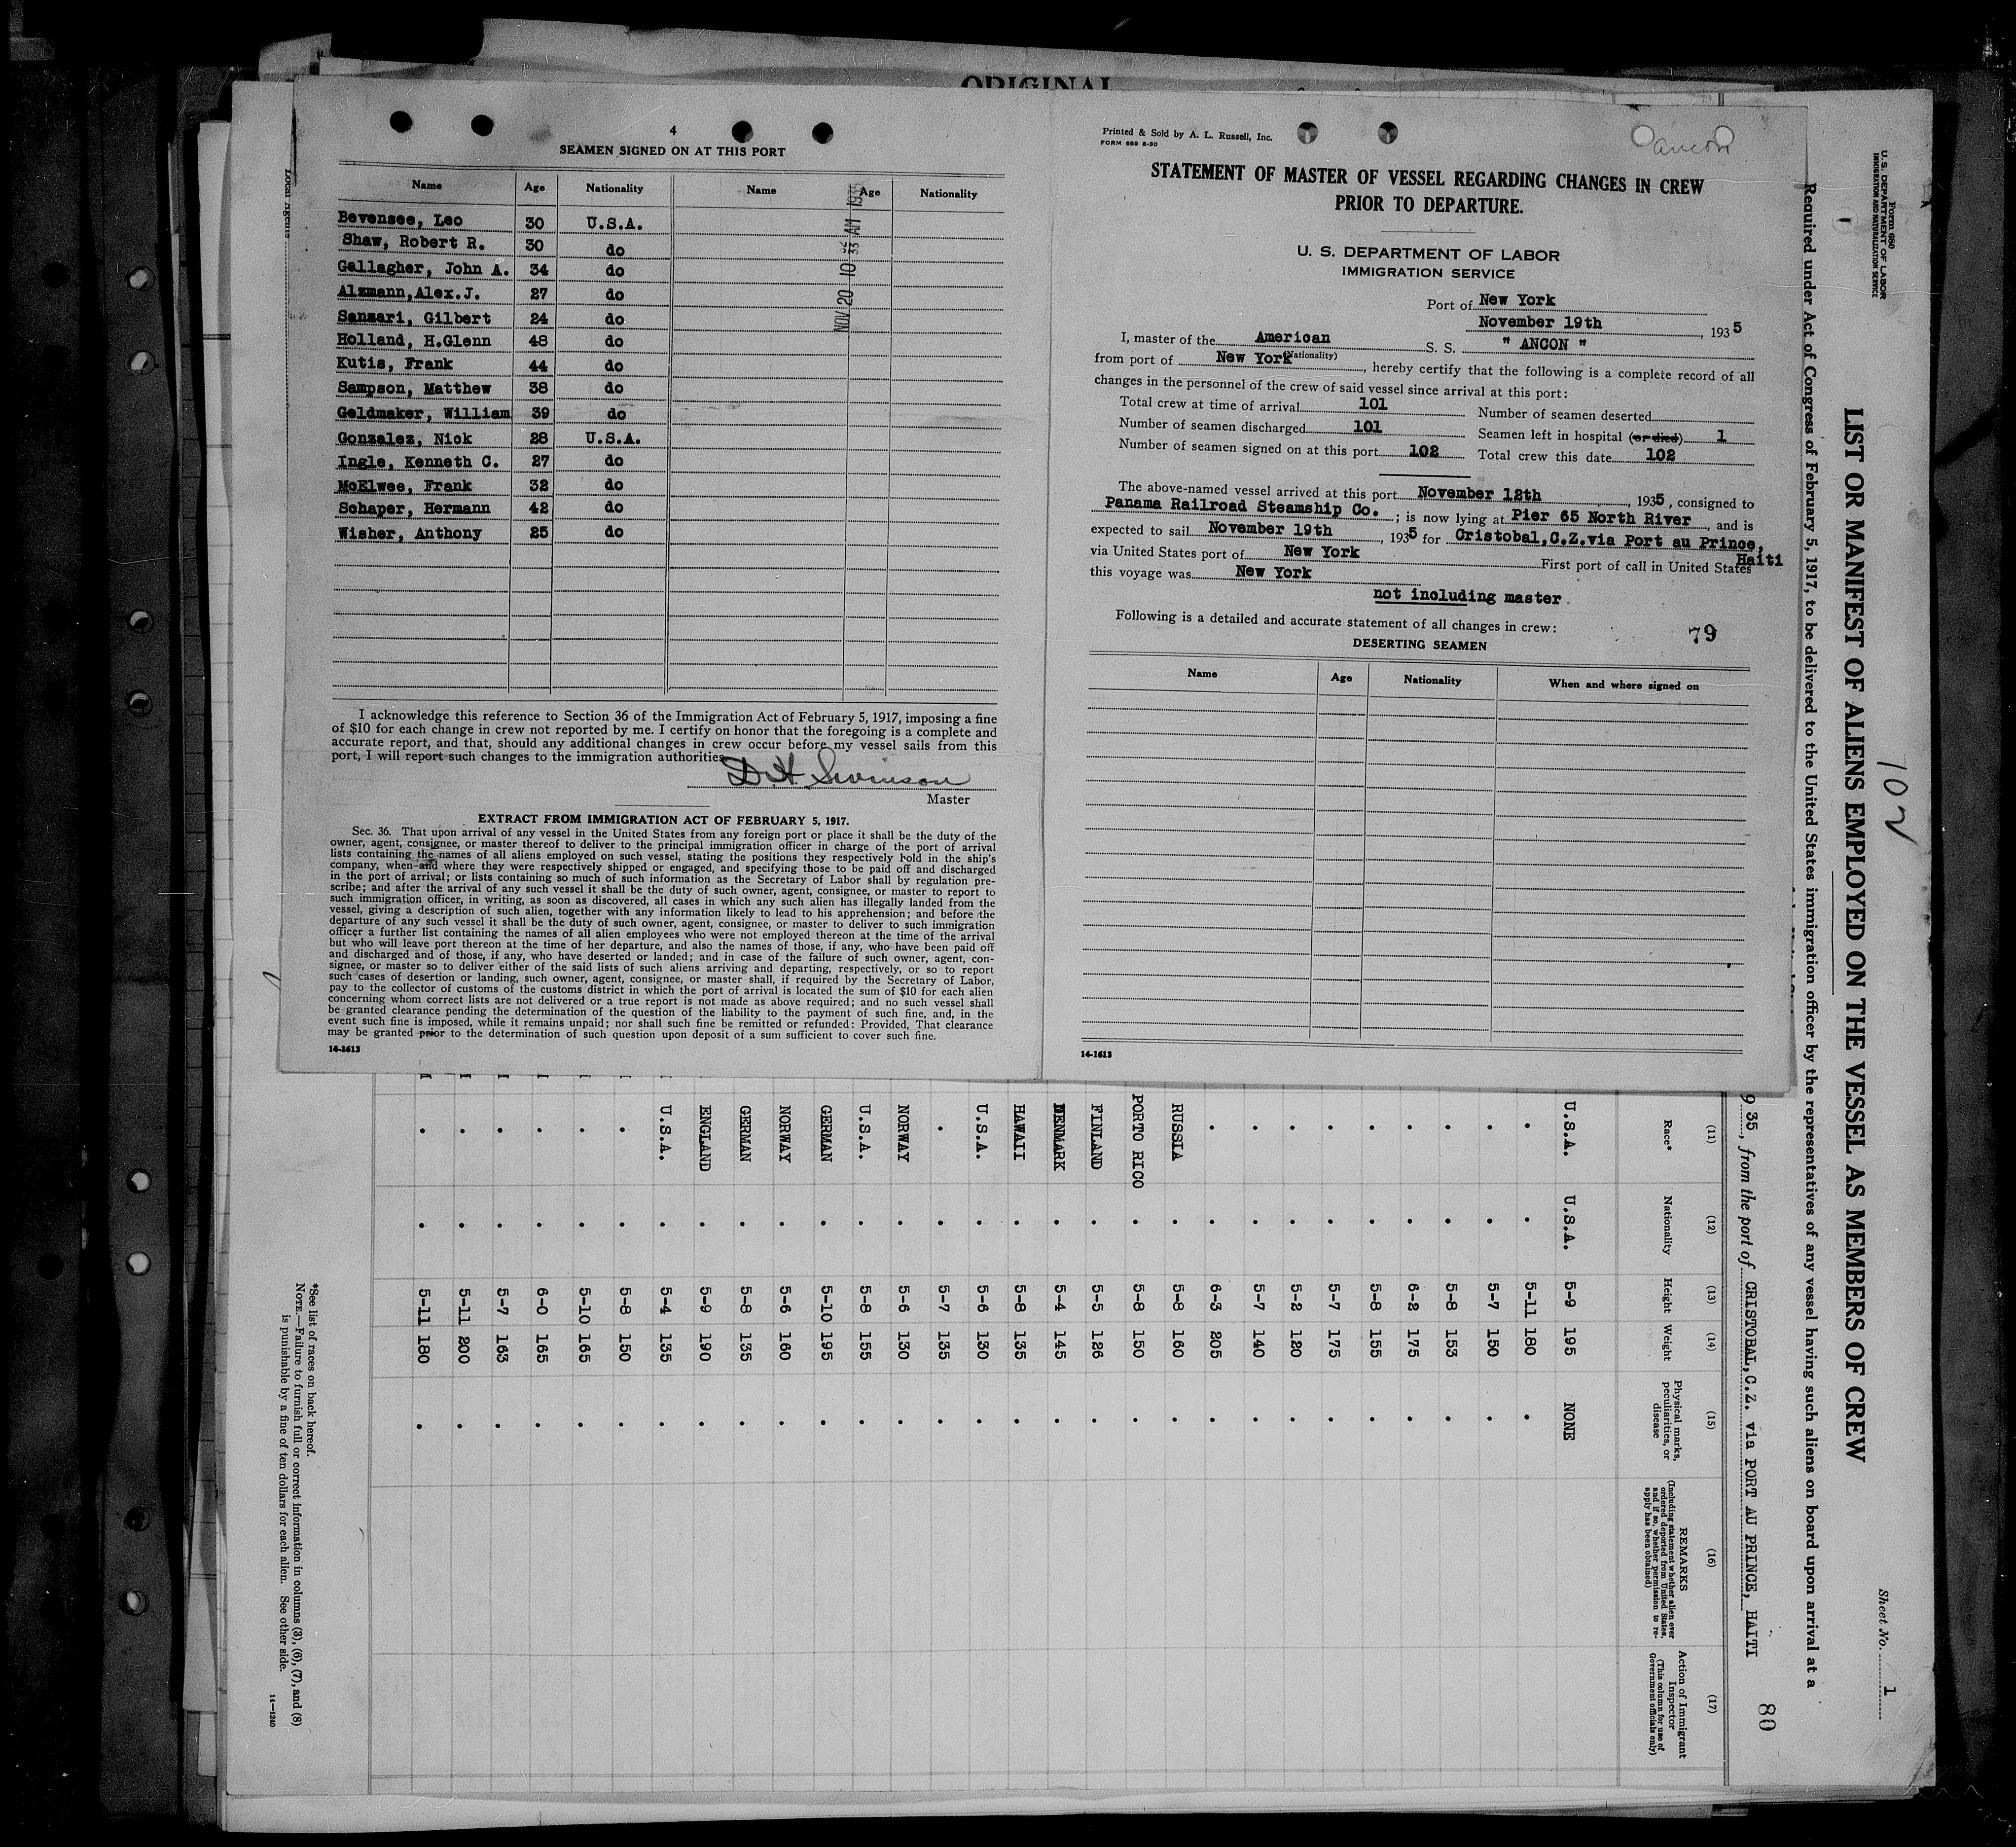 ORIGINAL
4
SEAMEN SIGNED ON AT THIS PORT
Name Age Nationality Name Age Nationality
Bevensee, Leo 30 U.S.A.
Shaw, Robert R. 30 do
Gallagher, John A. 34 do
Alzmann,Alex.J. 27 do
Sansari, Gilbert 24 do
Holland, H.Glenn 48 do
Kutis, Frank 44 do
Sampson, Matthew 38 do
Geldmaker, William 39 do
Gonzalez, Nick 28 U.S.A.
Ingle, Kenneth C. 27 do
McElwee, Frank 32 do
Schaper, Hermann 42 do
Wisher, Anthony 25 do
NOV 20 10 33 AM 1935
I acknowledge this reference to Section 36 of the Immigration Act of February 5, 1917, imposing a fine
of $10 for each change in crew not reported by me. I certify on honor that the foregoing is a complete and
accurate report, and that, should any additional changes in crew occur before my vessel sails from this
port, I will report such changes to the immigration authorities.
D H Swinson
Master
EXTRACT FROM IMMIGRATION ACT OF FEBRUARY 5, 1917.
Sec. 36. That upon arrival of any vessel in the United States from any foreign port or place it shall be the duty of the
owner, agent, consignee, or master thereof to deliver to the principal immigration officer in charge of the port of arrival
lists containing the names of all aliens employed on such vessel, stating the positions they respectively hold in the ship's
company, when and where they were respectively shipped or engaged, and specifying those to be paid off and discharged
in the port of arrival; or lists containing so much of such information as the Secretary of Labor shall by regulation pre-
scribe; and after the arrival of any such vessel it shall be the duty of such owner, agent, consignee, or master to report to
such immigration officer, in writing, as soon as discovered, all cases in which any such alien has illegally landed from the
vessel, giving a description of such alien, together with any information likely to lead to his apprehension; and before the
departure of any such vessel it shall be the duty of such owner, agent, consignee, or master to deliver to such immigration
officer a further list containing the names of all alien employees who were not employed thereon at the time of the arrival
but who will leave port thereon at the time of her departure, and also the names of those, if any, who have been paid off
and discharged and of those, if any, who have deserted or landed; and in case of the failure of such owner, agent, con-
signee, or master so to deliver either of the said lists of such aliens arriving and departing, respectively, or so to report
such cases of desertion or landing, such owner, agent, consignee, or master shall, if required by the Secretary of Labor,
pay to the collector of customs of the customs district in which the port of arrival is located the sum of $10 for each alien
concerning whom correct lists are not delivered or a true report is not made as above required; and no such vessel shall
be granted clearance pending the determination of the question of the liability to the payment of such fine, and, in the
event such fine is imposed, while it remains unpaid; nor shall such fine be remitted or refunded: Provided, That clearance
may be granted prior to the determination of such question upon deposit of a sum sufficient to cover such fine.
14-1613
Printed & Sold by A. L. Russell, Inc.
FORM 689 8-30
Ancon
STATEMENT OF MASTER OF VESSEL REGARDING CHANGES IN CREW
PRIOR TO DEPARTURE.
U. S. DEPARTMENT OF LABOR
IMMIGRATION SERVICE
Port of New York
November 19th, 1935
I, master of the American S. S. " ANCON "
(Nationality)
from port of New York, hereby certify that the following is a complete record of all
changes in the personnel of the crew of said vessel since arrival at this port:
Total crew at time of arrival 101 Number of seamen deserted
Number of seamen discharged 101 Seamen left in hospital (or died) 1
Number of seamen signed on at this port 102 Total crew this date 102
The above-named vessel arrived at this port November 12th, 1935, consigned to
Panama Railroad Steamship Co.; is now lying at Pier 65 North River, and is
expected to sail November 19th, 1935 for Cristobal,C.Z.via Port au Prince,
Haiti
via United States port of New York First port of call in United States
this voyage was New York
not including master.
Following is a detailed and accurate statement of all changes in crew:
79
DESERTING SEAMEN
Name Age Nationality When and where signed on
14-1613
Form 680
U. S. DEPARTMENT OF LABOR
IMMIGRATION AND NATURALIZATION SERVICE
102
Sheet No. 1
LIST OR MANIFEST OF ALIENS EMPLOYED ON THE VESSEL AS MEMBERS OF CREW
Required under Act of Congress of February 5, 1917, to be delivered to the United States immigration officer by the representatives of any vessel having such aliens on board upon arrival at a
80
9 35, from the port of CRISTOBAL,C.Z. via PORT AU PRINCE, HAITI
(11) (12) (13) (14) (15) (16) (17)
Race* Nationality Height Weight Physical marks, peculiarities, or disease REMARKS (Including statement whether alien ever ordered deported from United States, and if so, whether permission to re-apply has been obtained) Action of Immigrant Inspector (This column for use of Government officials only)
U.S.A. U.S.A. 5-9 195 NONE
" " 5-11 180 "
" " 5-7 150 "
" " 5-8 153 "
" " 6-2 175 "
" " 5-8 155 "
" " 5-7 175 "
" " 5-2 120 "
" " 5-7 140 "
" " 6-3 205 "
RUSSIA " 5-8 160 "
PORTO RICO " 5-8 150 "
FINLAND " 5-5 126 "
DENMARK " 5-4 145 "
HAWAII " 5-8 135 "
U.S.A. " 5-6 130 "
" " 5-7 135 "
NORWAY " 5-6 130 "
U.S.A. " 5-8 155 "
GERMAN " 5-10 195 "
NORWAY " 5-6 160 "
GERMAN " 5-8 135 "
ENGLAND " 5-9 190 "
U.S.A. " 5-4 135 "
" " 5-8 150 "
" " 5-10 165 "
" " 6-0 165 "
" " 5-7 163 "
" " 5-11 200 "
" " 5-11 180 "
*See list of races on back hereof.
NOTE.—Failure to furnish full or correct information in columns (3), (6), (7), and (8)
is punishable by a fine of ten dollars for each alien. See other side.
14—1240
Local Agents